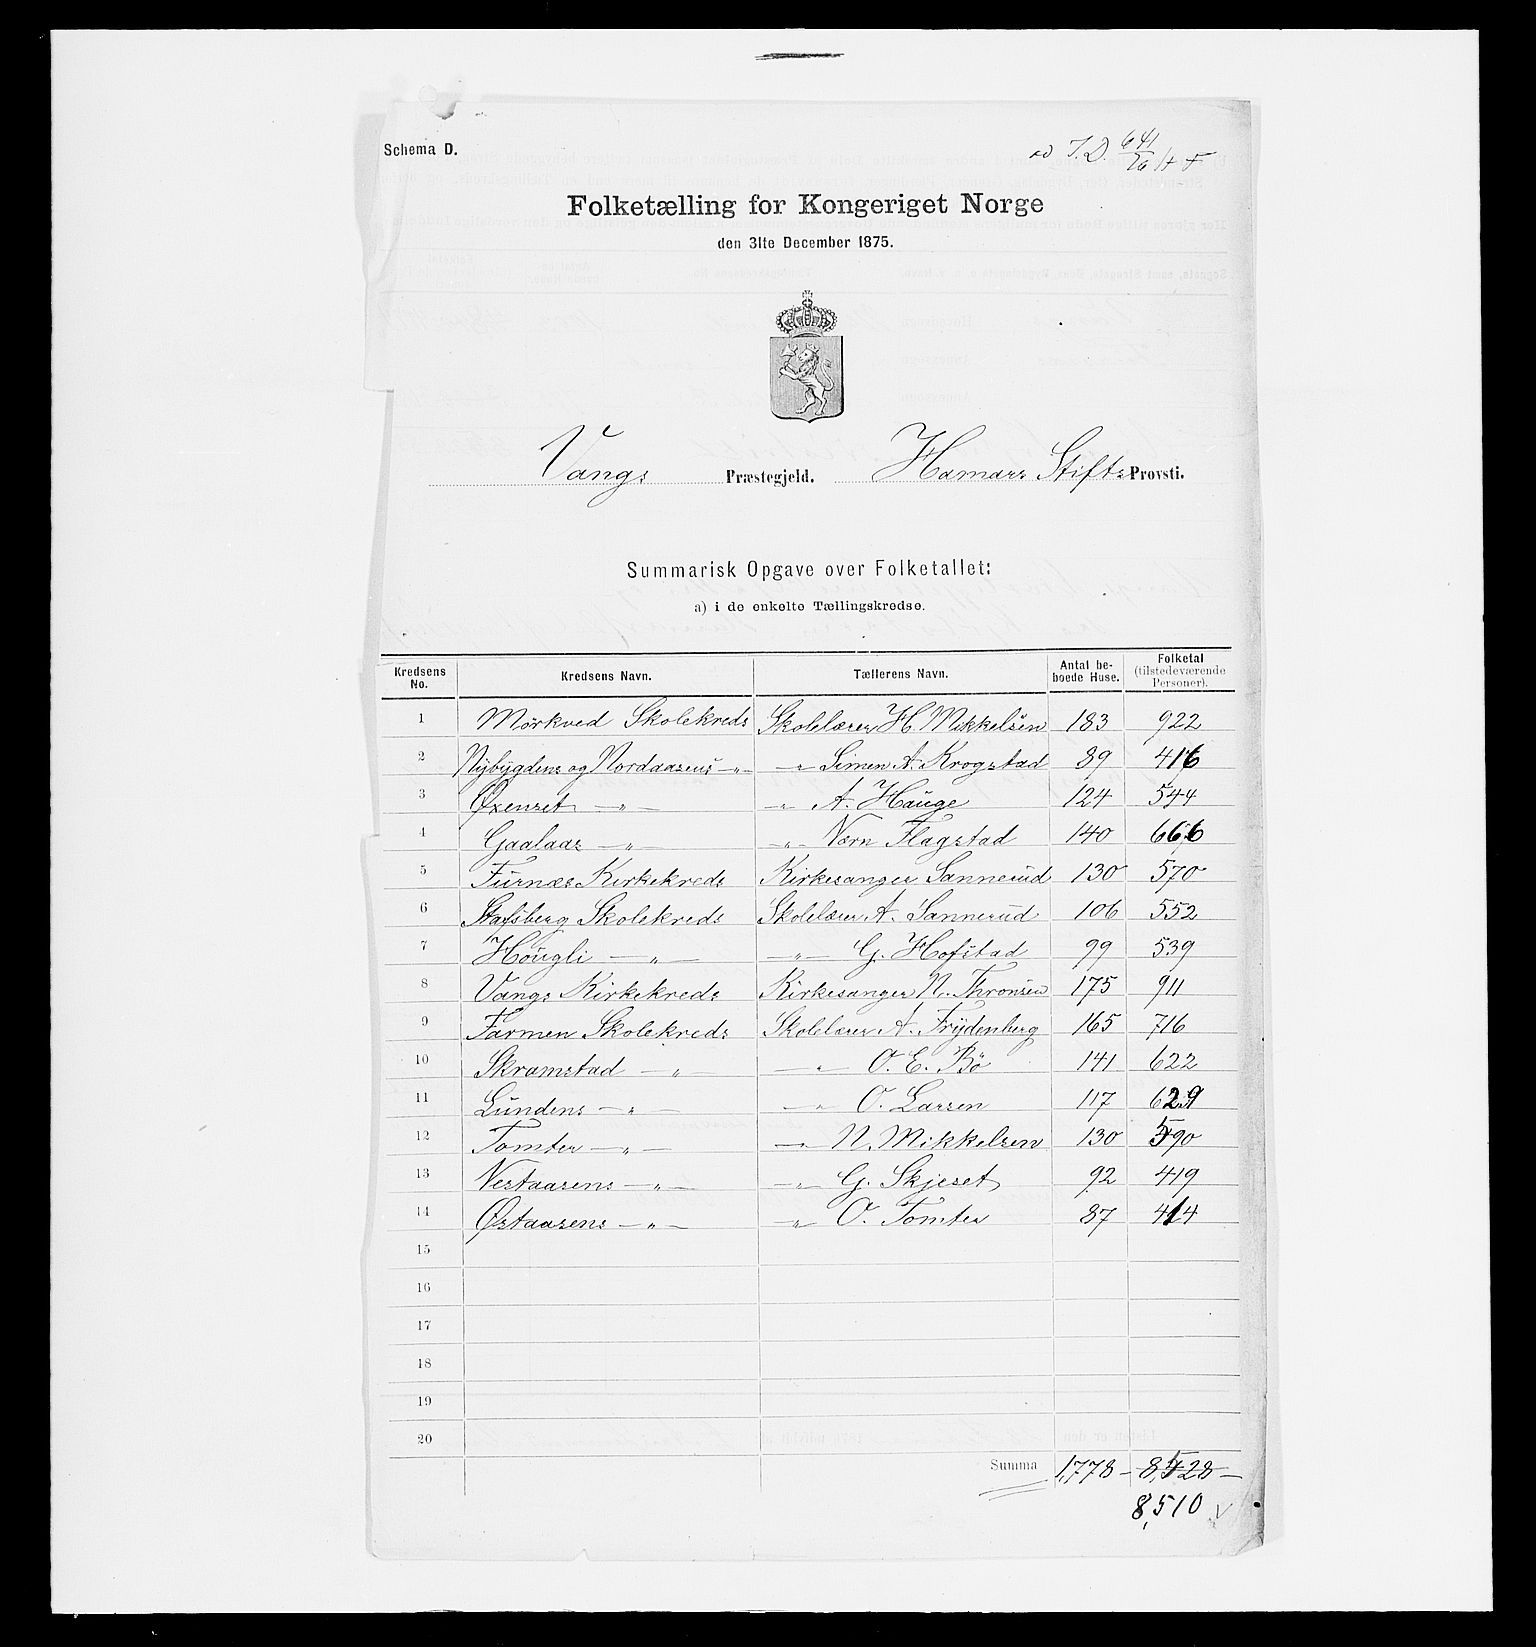 Schema D.
ad J.D. 641/76 H F
Folketælling for Kongeriget Norge
den 31te December 1875.
Vangs Præstegjeld. Hamars Stifts Provsti.
Summarisk Opgave over Folketallet:
a) i de enkelte Tællingskredse.
Kredsens No. Kredsens Navn. Tællerens Navn. Antal beboede Huse. Folketal (tilstedeværende Personer).
1 Mörkved Skolekreds Skolelærer H. Mikkelsen 183 922
2 Nybygdens og Nordaasens —"— —"— Simen A. Krogstad 89 416
3 Øxenset —"— —"— A. Hauge 124 544
4 Gaalaas —"— —"— Nærn Flagstad 140 666
5 Furnæs Kirkekreds Kirkesanger Sannerud 130 570
6 Stafsberg Skolekreds Skolelærer A. Sannerud 106 552
7 Hougli —"— —"— G. Hofstad 99 539
8 Vangs Kirkekreds Kirkesanger N. Thronsen 175 911
9 Farmen Skolekreds Skolelærer A. Frydenberg 165 716
10 Skramstad —"— —"— O. E. Bö 141 622
11 Lundens —"— —"— O. Larsen 117 629
12 Tomter —"— —"— N. Mikkelsen 130 590
13 Vestaasens —"— —"— G. Skjeset 92 419
14 Østaasens —"— —"— O. Tomter 87 414
15
16
17
18
19
20
Summa 1,778 – 8,528 –
8,510 v